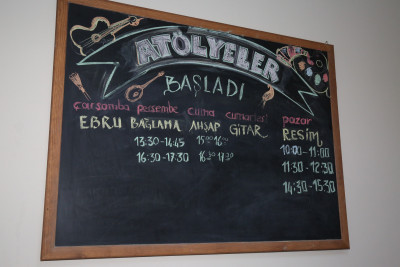 ATÖLYELER
BAŞLADI
çarşamba perşembe cuma cumartesi pazar
EBRU BAĞLAMA AHŞAP GİTAR RESİM
13:30-14:45 10:00-11:00
16:30-17:30 16:30-17:30 11:30-12:30
14:30-15:30